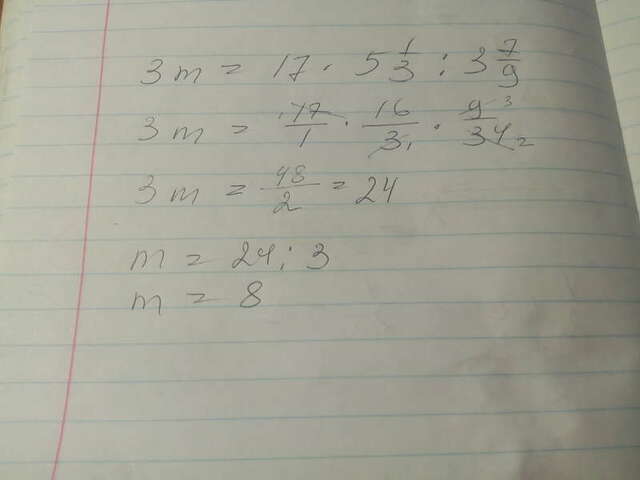 3m = 17 · 5 1/3 : 3 7/9
3m = 17/1 · 16/3 1 · 9 3/34 2
3m = 48/2 = 24
m = 24 : 3
m = 8